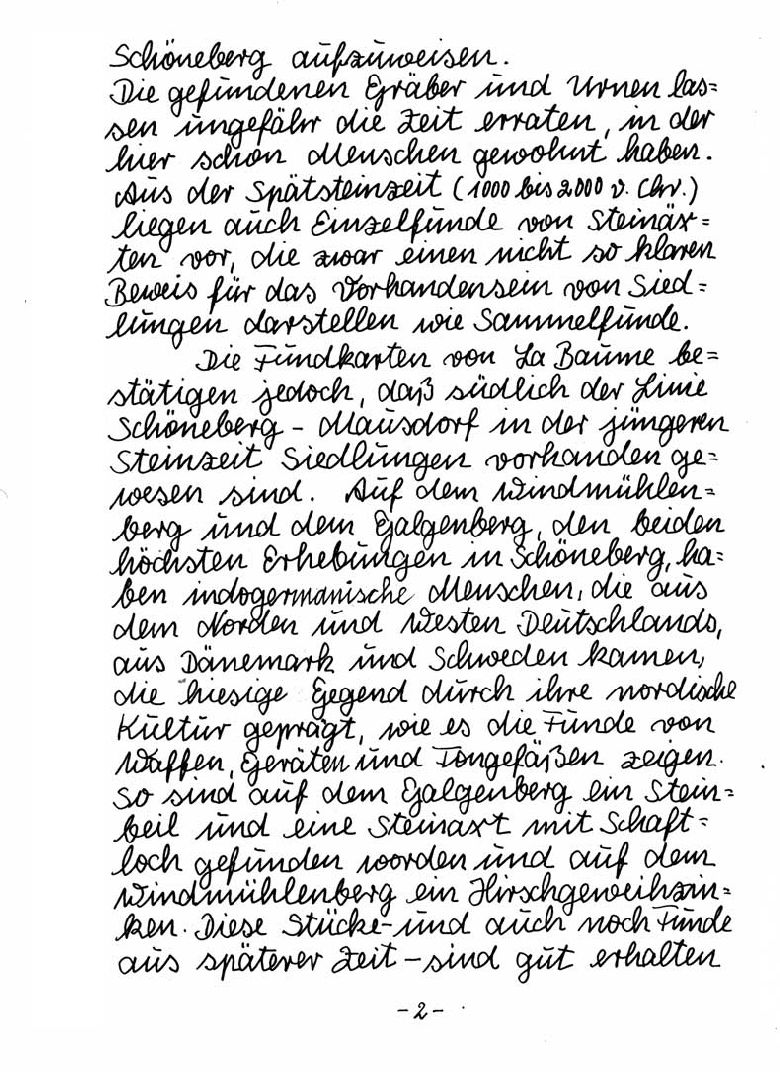 Schöneberg aufzuweisen.
Die gefundenen Gräber und Urnen las=
sen ungefähr die Zeit erraten, in der
hier schon Menschen gewohnt haben.
Aus der Spätsteinzeit (1000 bis 2000 v. Chr.)
liegen auch Einzelfunde von Steinäx=
ten vor, die zwar einen nicht so klaren
Beweis für das Vorhandensein von Sied=
lungen darstellen wie Sammelfunde.
Die Fundkarten von La Baume be=
stätigen jedoch, daß südlich der Linie
Schöneberg - Mausdorf in der jüngeren
Steinzeit Siedlungen vorhanden ge=
wesen sind. Auf dem Windmühlen=
berg und dem Galgenberg, den beiden
höchsten Erhebungen in Schöneberg, ha=
ben indogermanische Menschen, die aus
dem Norden und Westen Deutschlands,
aus Dänemark und Schweden kamen,
die hiesige Gegend durch ihre nordische
Kultur geprägt, wie es die Funde von
Waffen, Geräten und Tongefäßen zeigen.
So sind auf dem Galgenberg ein Stein=
beil und eine Steinaxt mit Schaft=
loch gefunden worden und auf dem
Windmühlenberg ein Hirschgeweihzin=
ken. Diese Stücke - und auch noch Funde
aus späterer Zeit - sind gut erhalten
- 2 -